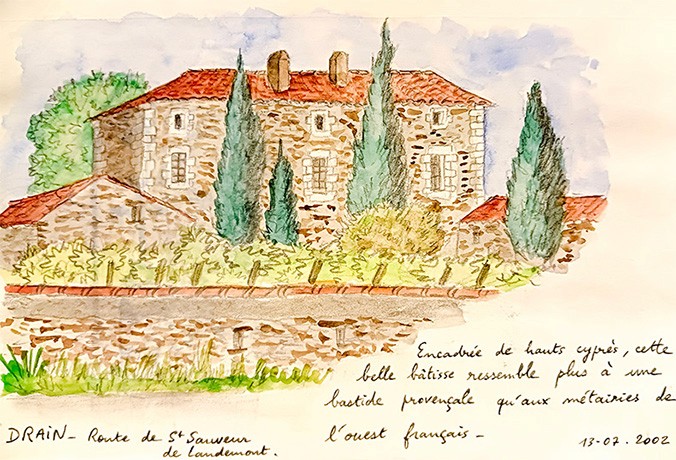 Encadrée de hauts cyprès, cette
belle bâtisse ressemble plus à une
bastide provençale qu'aux métairies de
l'ouest français -
13-07.2002
DRAiN - Route de St Sauveur
de Landemont.